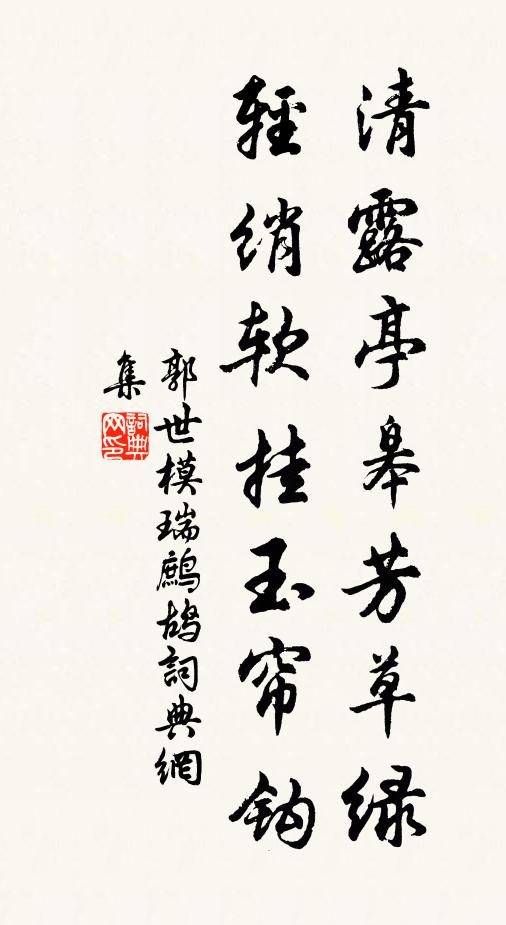 清露亭皋芳草绿
輕绡软挂玉帘钩
郭世模瑞鹧鸪詞典網
集
詞典
网印